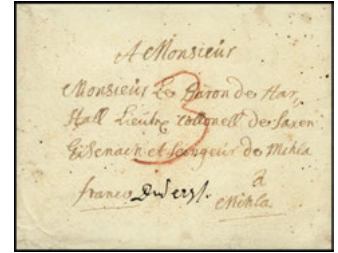 A Monsieur
Monsieur Le Baron de Har,,
Hall Lieutn: collonell de Saxen
Eisenach et Seingeur de Mihla
3
franco
à
Mihla